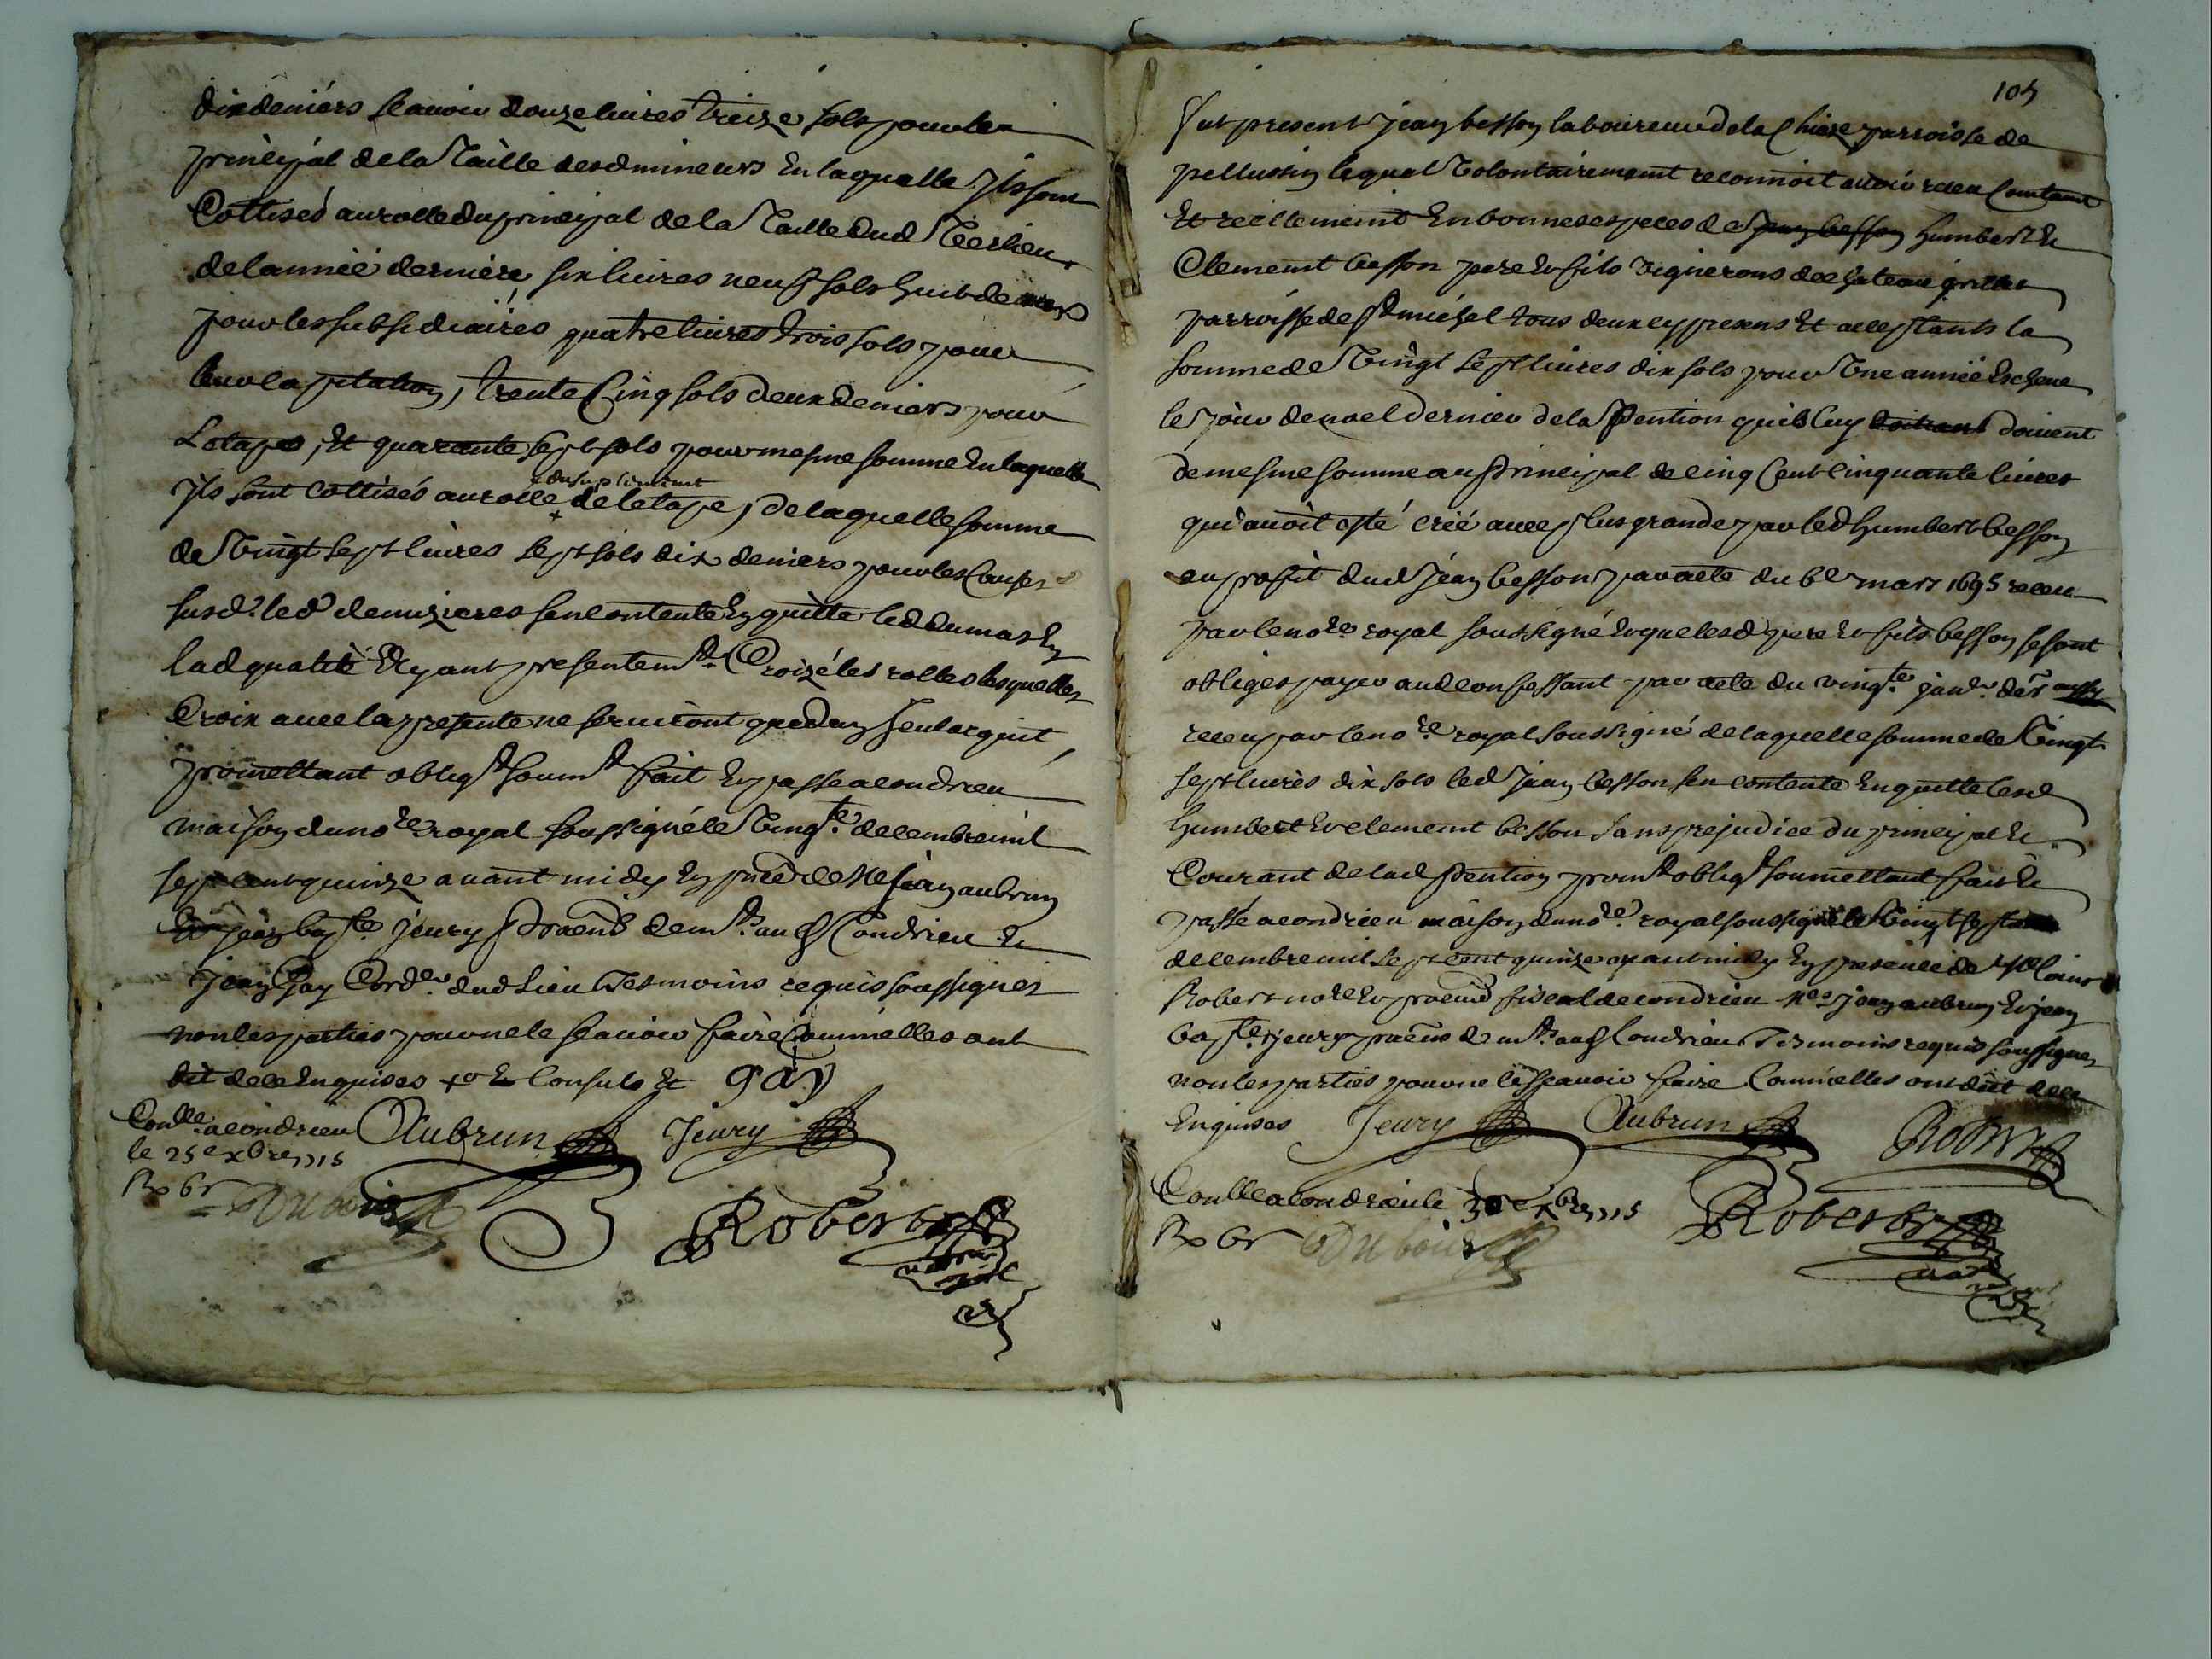 dix deniers scavoir douze livres treize sols pour le
principal de la Taille desd mineurs en laquelle Ils sont
Cottisés au rolle du principal de la Taille dud Verlieu
de lannéé derniere six livres neuf sols huit deniers
pour les subsidiaires quatre livres trois sols pour
leur capitation, trente Cinq sols deux deniers pour
Letape, Et quarante sept sols pour mesme somme En laquelle
+ du suplement
Ils sont cottisés au rolle + de letape, de laquelle somme
de Vingt sept livres sept sols dix deniers pour les Causes
susd. led demezieres sen contente En quitte led dumas En
lad qualité Ayant presentemt. Croizé les rolles lesquelles
Croix avec la presente ne serviront que dun seul acquit
promettant obligt soumt fait En passe a condrieu
maison du nore royal soussigné le Vingte. decembre mil
sept cent quinze avant midy En pnce de Me Jean aubrun
Et Jean bapte Jeury pratiens demt. aud Condrieu Et
Jean Gay Cordr. dud Lieu Tesmoins requis soussignes
non les parties pour ne le scavoir faire Comme elles ont
dit de ce Enquises Et Consuls Et gay
Conlle a condrieu Aubrun Jeury
le 25e xbre 1715
R 6s Dubois Robert
105
Fut present Jean besson laboureur de la Chieze parroisse de
pellussin lequel Volontairement reconnoit avoir receu Contant
Et reellement En bonnes especes de Jean besson humbert Et
Clement besson pere Et fils vignerons de chateau grillet
parroisse de St michel tous deux cy presens Et acceptants la
somme de Vingt sept livres dix sols pour Une annéé Escheue
le Jour de noel dernier de la Pention quils luy doivent
de mesme somme au Principal de cinq Cent Cinquante livres
qui avoit esté créé avec plus grande par led humbert besson
au proffit dud Jean besson par acte du 6e mars 1695 receu
par le nore royal soussigné Et que lesd pere Et fils besson se sont
obliges payer aud confessant par acte du vingte. janr. der aussy
receu par le nore royal soussigné de laquelle somme de Vingt
sept livres dix sols led Jean besson sen contente En quitte lesd
humbert Et clement besson sans prejudice du principal Et
Courant de lad Pention promt obligt soumettant fait Et
passé a condrieu maison du nore. royal soussigné le Vingt sept
decembre mil sept cent quinze avant midy En presence de Me
Robert nore Et procur fiscal de condrieu Mes Jean aubrun Et Jean
bapte. Jeury pratiens demt. aud Condrieu Tesmoins requis soussignes
non les parties pour ne le scavoir faire Comme elles ont dit de ce
Enquises Jeury Aubrun Robert
Conlle a condrieu le 30e xbre 1715
R 6s Dubois Robert